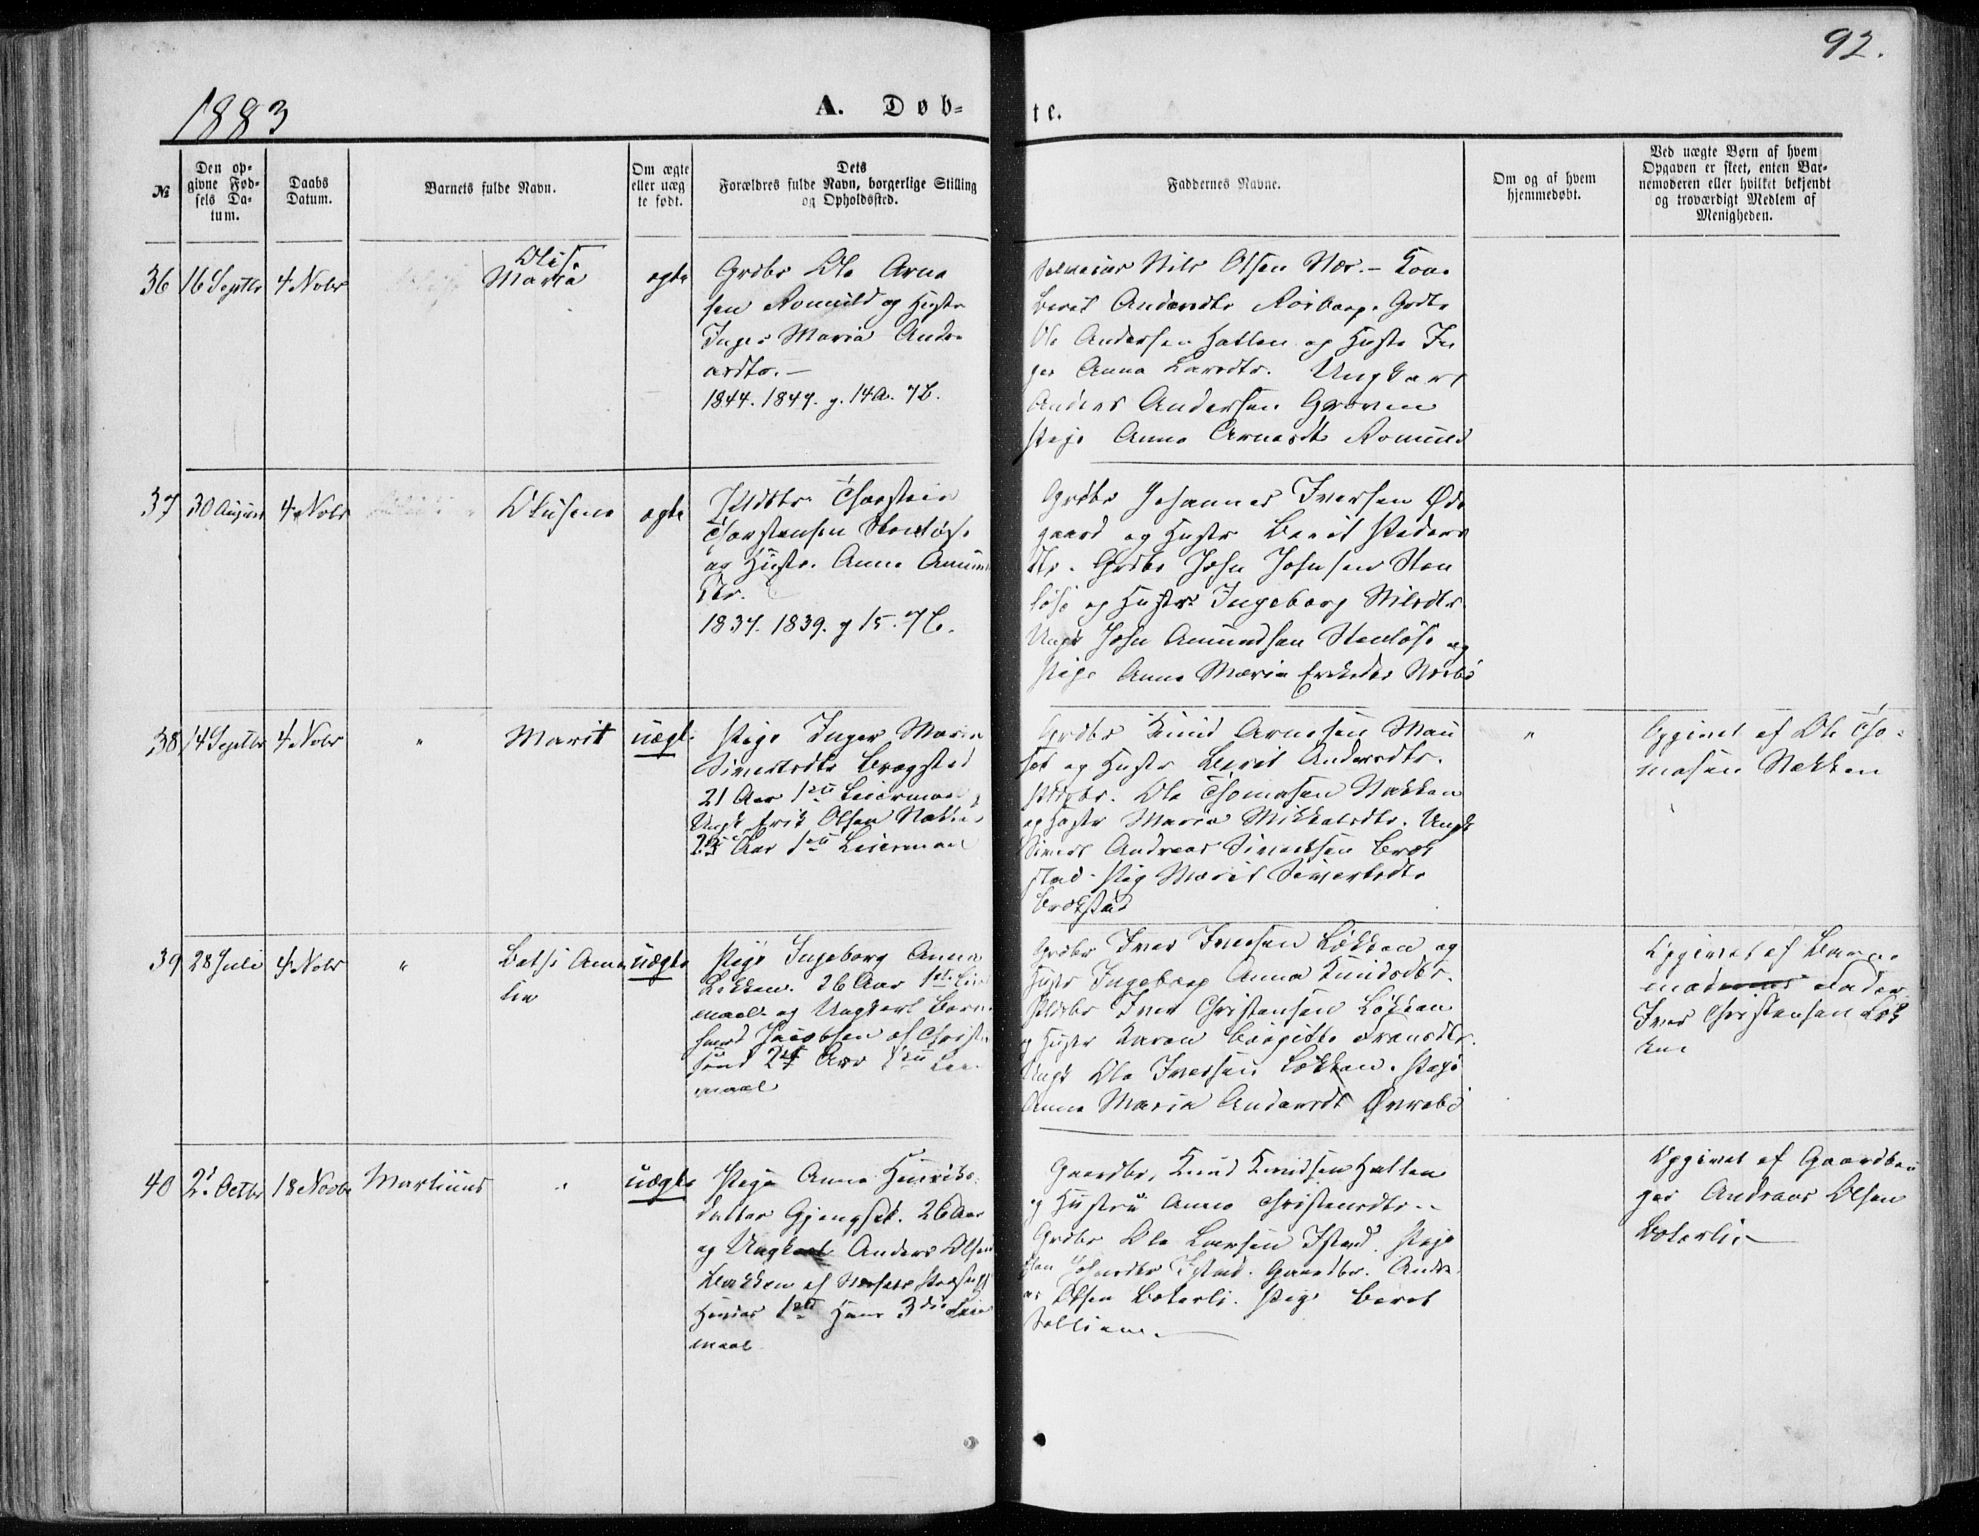 92.
1883
A. Døb-
te.
№
Den op-
givne Fød-
sels Da-
tum.
Daabs
Datum.
Barnets fulde Navn.
Om ægte
eller uæg
te født.
Dets
Forældres fulde Navn, borgerlige Stilling
og Opholdssted.
Faddernes Navne.
Om og af hvem
hjemmedøbt.
Ved uægte Børn af hvem
Opgaven er skeet, enten Bar-
nemoderen eller hvilket bekjendt
og troværdigt Medlem af
Menigheden.
36
16 Septbr
4 Nobr
Maria
ægte
Grdbr Ole Arne
sen Romuld og Hustr
Inger Maria Andre
asdtr.
1844. 1847. g. 14 A. 7 B.
Nils Olsen
Berit Andersdtr
Ole Andersen Hatlen og Hustr In
ger Anna Larsdtr. Ungkarl
Anders Andersen Groven
Pige Anne Arnesdtr Romuld
37
30 August
4 Nobr
Olusene
ægte
Pldsbr Thorstein
Thorstensen Stenløse
og Hustr. Anne Amunds
dtr.
1837. 1839. g 15. 7 B.
Grdbr Johannes Iversen Øde
gaard og Hustr Berit Peders
dtr. Grdbr John Johnsen Sten
løse og Hustr Ingeborg Nilsdtr
Ungk John Amundsen Stenløse og
Pige Anne Maria Eriksdtr
38
14 Septbr
4 Nobr
"
Marit
uægte
Pige Inger Maria
Sivertsdtr Brægstad
21 Aar 1ste Leiermaal
Ungk Erik Olsen Nakken
23 Aar 1ste Leiermaal
Grdbr Knud Arnesen Mau
set og Hustr Berit Andersdtr.
Pldsbr. Ole Thomasen Nakken
og Hustr Maria Mikkelsdtr. Ungk
Sivert Andreas Sivertsen Bræk
stad. Pig Marit Sivertsdtr
Brækstad
"
Opgivet af Ole Tho-
masen Nakken
39
28 Juli
4 Nobr
"
Bethi Anna
uægte
Pige Ingeborg Anna
Løkken. 26 Aar 1ste Leier
maal og Ungkarl Bern
hard Jacobsen af Christi
sund 24 Aar 1ste Leier
maal
Grdbr Iver Iversen Løkken og
Hustr Ingeborg Anna Knudsdtr.
Pldsbr Iver Christensen Løkken
og Hustr Karen Birgitte Fransdtr.
Ungk Ole Iversen Løkken. Pige
Anne Maria Andersdt
Opgivet af Barne
moderens Fader
Iver Christensen Løk
ken
40
21 Octbr
18 Novbr
Martinus
"
uægte
Pige Anne Henriks
datter Gjengset. 26 Aar
og Ungkarl Anders Olsen
Bakken af Nesset Præstegj
Hendes 1ste Hans 3die Leier
maal
Gaardbr. Knud Knudsen Hatlen
og Hustru Anne Christensdtr.
Grdbr Ole Larsen Istad. Pige
Johnsdtr Istad. Gaardbr. Andre
as Olsen Bolerli. Pige Beret
Opgivet af Gaardbru
ger Andreas Olsen
Bolerli